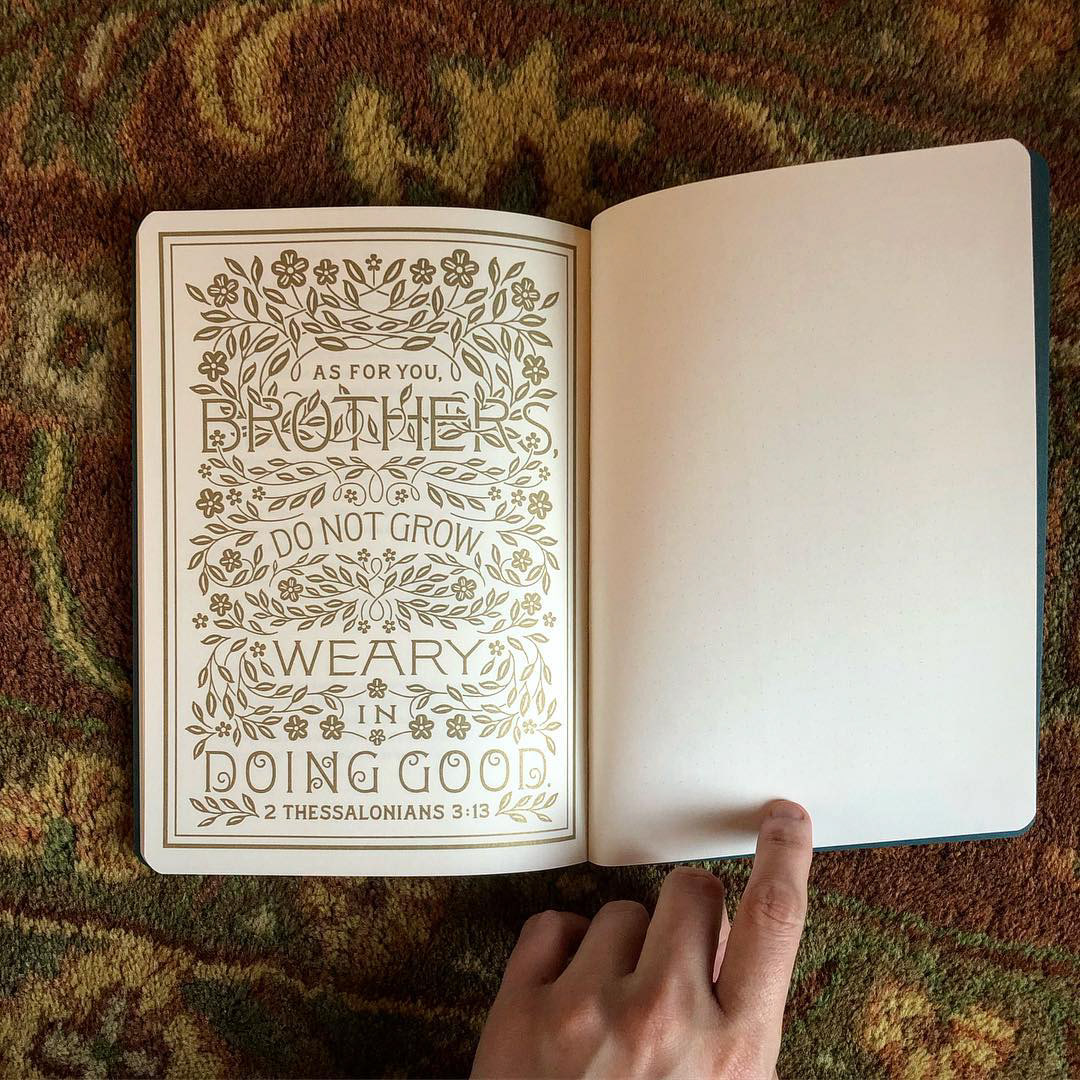 AS FOR YOU,
BROTHERS,
DO NOT GROW
WEARY
IN
DOING GOOD.
2 THESSALONIANS 3:13